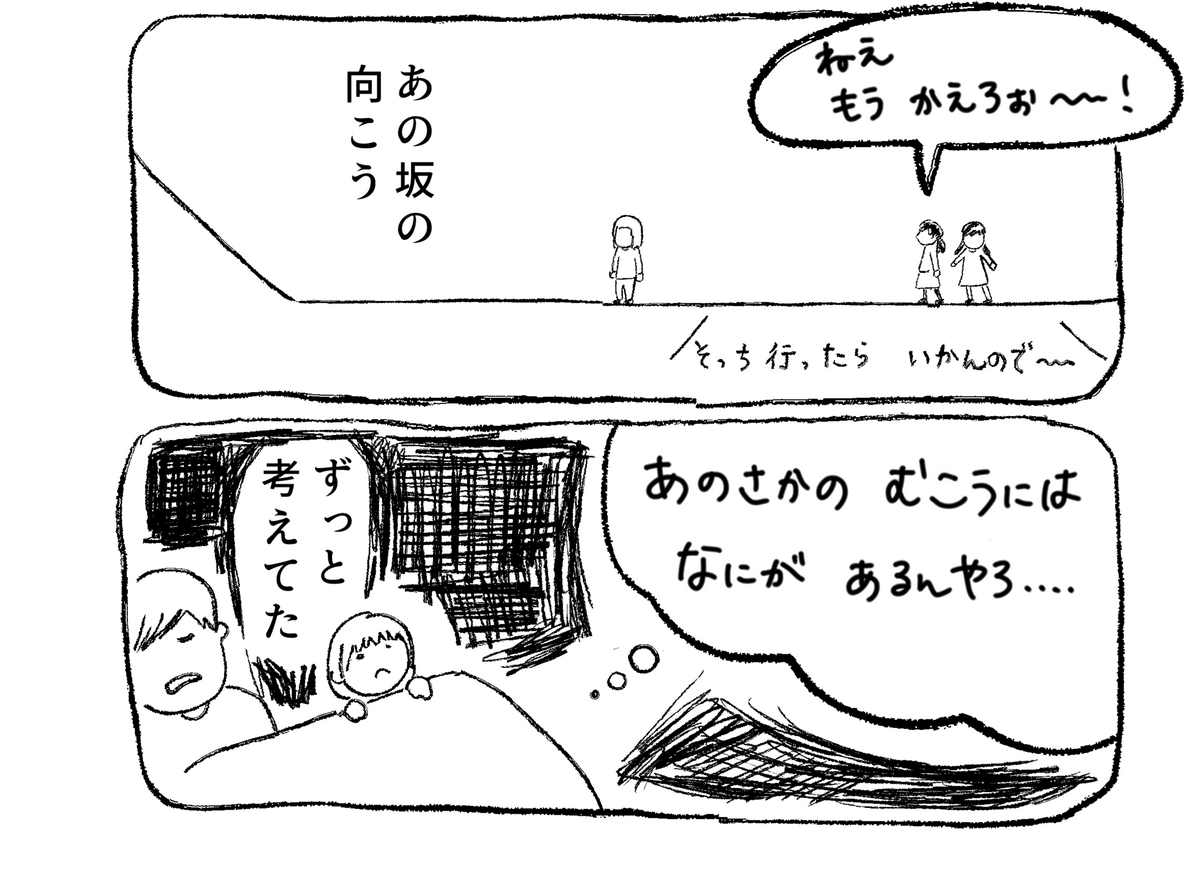 ねえ
もう かえろぉ〜〜!
あの坂の
向こう
そっち行ったら いかんので〜〜
あのさかの むこうには
なにが あるんやろ‥‥
ずっと
考えてた